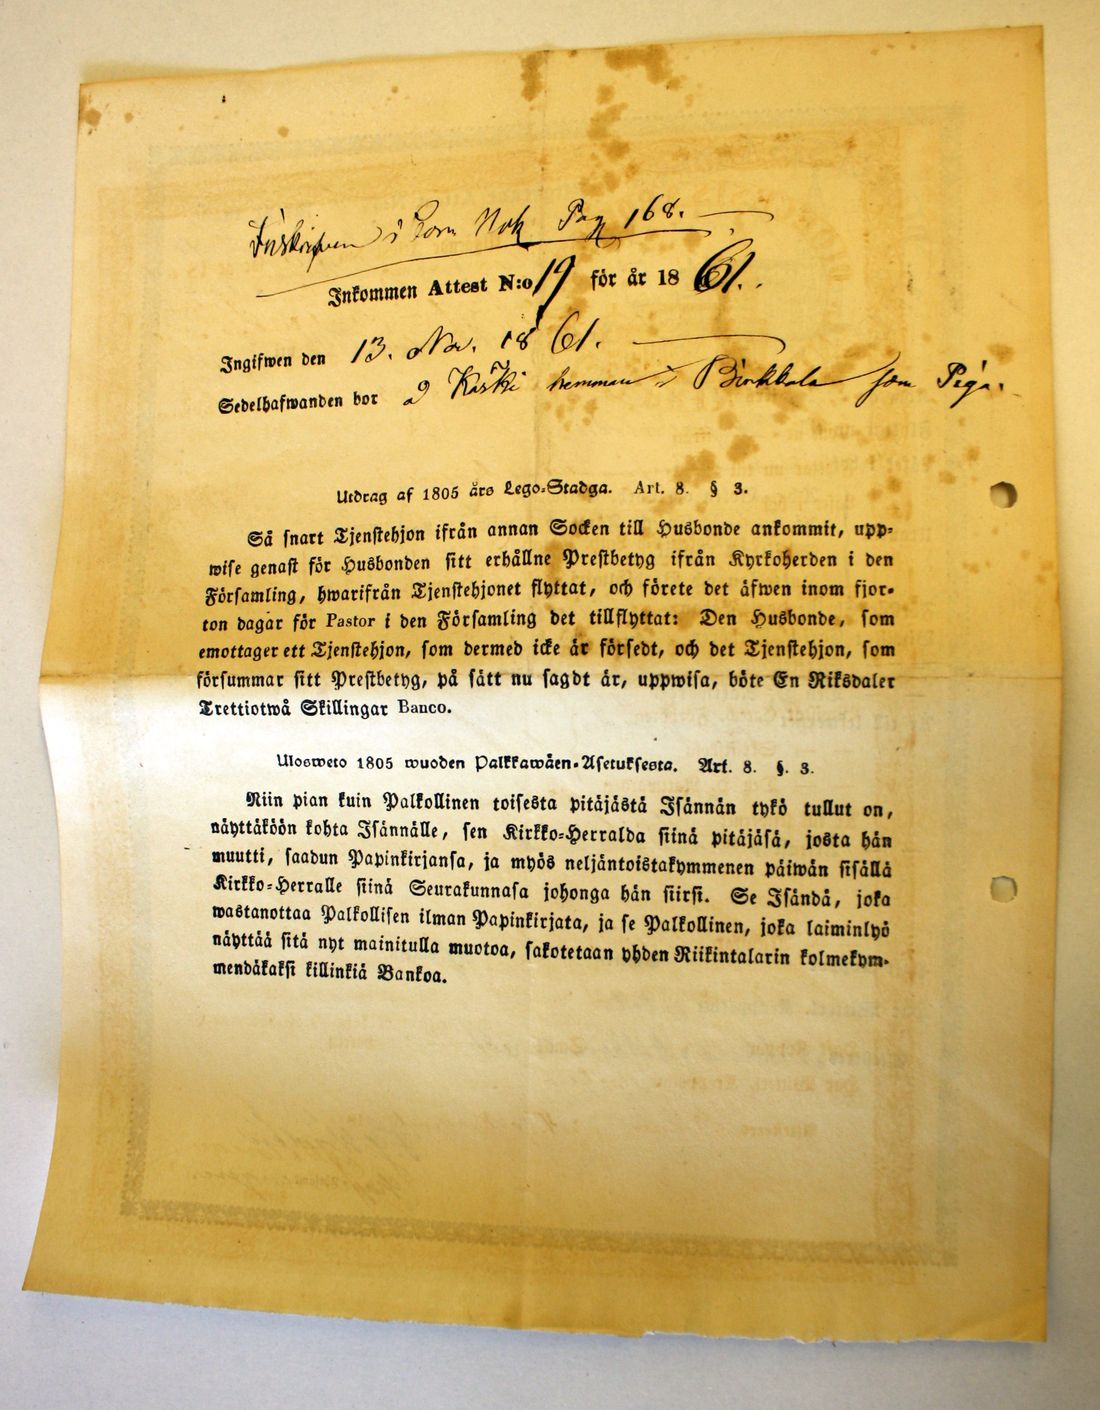 Inskrifven i Com Bok Pag 168.
Inkommen Attest N:o 19 för år 1861.
Ingifwen den 13. Nov. 1861.
Sedelhafwanden bor å Kaski hemman i Birkkala som Piga.
Utdrag af 1805 års Lego-Stadga. Art. 8. § 3.
Så snart Tjenstehjon ifrån annan Socken till Husbonde ankommit, upp-
wise genast för Husbonden sitt erhållne Prestbetyg ifrån Kyrkoherden i den
Församling, hwarifrån Tjenstehjonet flyttat, och förete det äfwen inom fjor-
ton dagar för Pastor i den Församling det tillflyttat: Den Husbonde, som
emottager ett Tjenstehjon, som dermed icke är försedt, och det Tjenstehjon, som
försummar sitt Prestbetyg, på sätt nu sagdt är, uppwisa, böte En Riksdaler
Trettiotwå Skillingar Banco.
Ulosweto 1805 wuoden Palkkawäen-Asetuksesta. Art. 8. §. 3.
Niin pian kuin Palkollinen toisesta pitäjästä Isännän tykö tullut on,
näyttäköön kohta Isännälle, sen Kirkko-Herralda siinä pitäjäsä, josta hän
muutti, saadun Papinkirjansa, ja myös neljäntoistakymmenen päiwän sisällä
Kirkko-Herralle siinä Seurakunnasa johonga hän siirsi. Se Isändä, joka
wastanottaa Palkollisen ilman Papinkirjata, ja se Palkollinen, joka laiminlyö
näyttää sitä nyt mainitulla muotoa, sakotetaan yhden Riikintalarin kolmekym-
mendäkaksi killinkiä Bankoa.